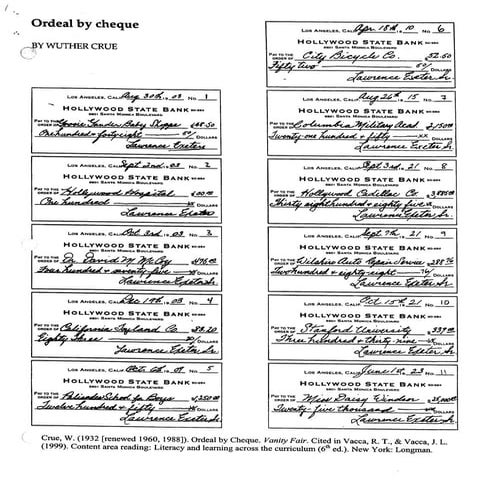 Ordeal by cheque
BY WUTHER CRUE
LOS ANGELES, CALIF. Aug 30th, 03 No. 1
HOLLYWOOD STATE BANK
6801 SANTA MONICA BOULEVARD
PAY TO THE
ORDER OF Baby Shoppe $148.50
One hundred & forty eight 50/ DOLLARS
Lawrence Exeter
LOS ANGELES, CALIF. Sept 2nd, 03 No. 2
HOLLYWOOD STATE BANK
6801 SANTA MONICA BOULEVARD
PAY TO THE
ORDER OF Hollywood Hospital $100.00
One hundred xx DOLLARS
Lawrence Exeter
LOS ANGELES, CALIF. Oct 3rd, 03 No. 3
HOLLYWOOD STATE BANK
6801 SANTA MONICA BOULEVARD
PAY TO THE
ORDER OF Dr. David M. McCoy $475.00
Four hundred & seventy five xx DOLLARS
Lawrence Exeter Sr.
LOS ANGELES, CALIF. Dec 19th, 03 No. 4
HOLLYWOOD STATE BANK
6801 SANTA MONICA BOULEVARD
PAY TO THE
ORDER OF California Toyland Co. $83.20
Eighty Three 20/ DOLLARS
Lawrence Exeter Sr.
LOS ANGELES, CALIF. Oct. 6th, 09 No. 5
HOLLYWOOD STATE BANK
6801 SANTA MONICA BOULEVARD
PAY TO THE
ORDER OF Palisades School for Boys $1,250.00
Twelve hundred & fifty xx DOLLARS
Lawrence Exeter Sr.
LOS ANGELES, CALIF. Apr. 18th, 10 No. 6
HOLLYWOOD STATE BANK
6801 SANTA MONICA BOULEVARD
PAY TO THE
ORDER OF City Bicycle Co. $52.50
Fifty two 50/ DOLLARS
Lawrence Exeter Sr.
LOS ANGELES, CALIF. Aug 26th, 15 No. 7
HOLLYWOOD STATE BANK
6801 SANTA MONICA BOULEVARD
PAY TO THE
ORDER OF Columbia Military Acad. $2,150.00
Twenty one hundred & fifty xx DOLLARS
Lawrence Exeter Sr.
LOS ANGELES, CALIF. Sept 3rd, 21 No. 8
HOLLYWOOD STATE BANK
6801 SANTA MONICA BOULEVARD
PAY TO THE
ORDER OF Hollywood Cadillac Co. $3,885.00
Thirty eight hundred & eighty five xx DOLLARS
Lawrence Exeter Sr.
LOS ANGELES, CALIF. Sept. 7th, 21 No. 9
HOLLYWOOD STATE BANK
6801 SANTA MONICA BOULEVARD
PAY TO THE
ORDER OF Wilshire Auto Repair Service $288.76
Two hundred & eighty-eight 76/ DOLLARS
Lawrence Exeter Sr.
LOS ANGELES, CALIF. Oct 15th, 21 No. 10
HOLLYWOOD STATE BANK
6801 SANTA MONICA BOULEVARD
PAY TO THE
ORDER OF Stanford University $339.00
Three hundred & thirty nine xx DOLLARS
Lawrence Exeter Sr.
LOS ANGELES, CALIF. June 1st, 23 No. 11
HOLLYWOOD STATE BANK
6801 SANTA MONICA BOULEVARD
PAY TO THE
ORDER OF Miss Daisy Windsor $25,000.00
Twenty five thousand xx DOLLARS
Lawrence Exeter Sr.
Crue, W. (1932 [renewed 1960, 1988]). Ordeal by Cheque. Vanity Fair. Cited in Vacca, R. T., & Vacca, J. L.
(1999). Content area reading: Literacy and learning across the curriculum (6th ed.). New York: Longman.